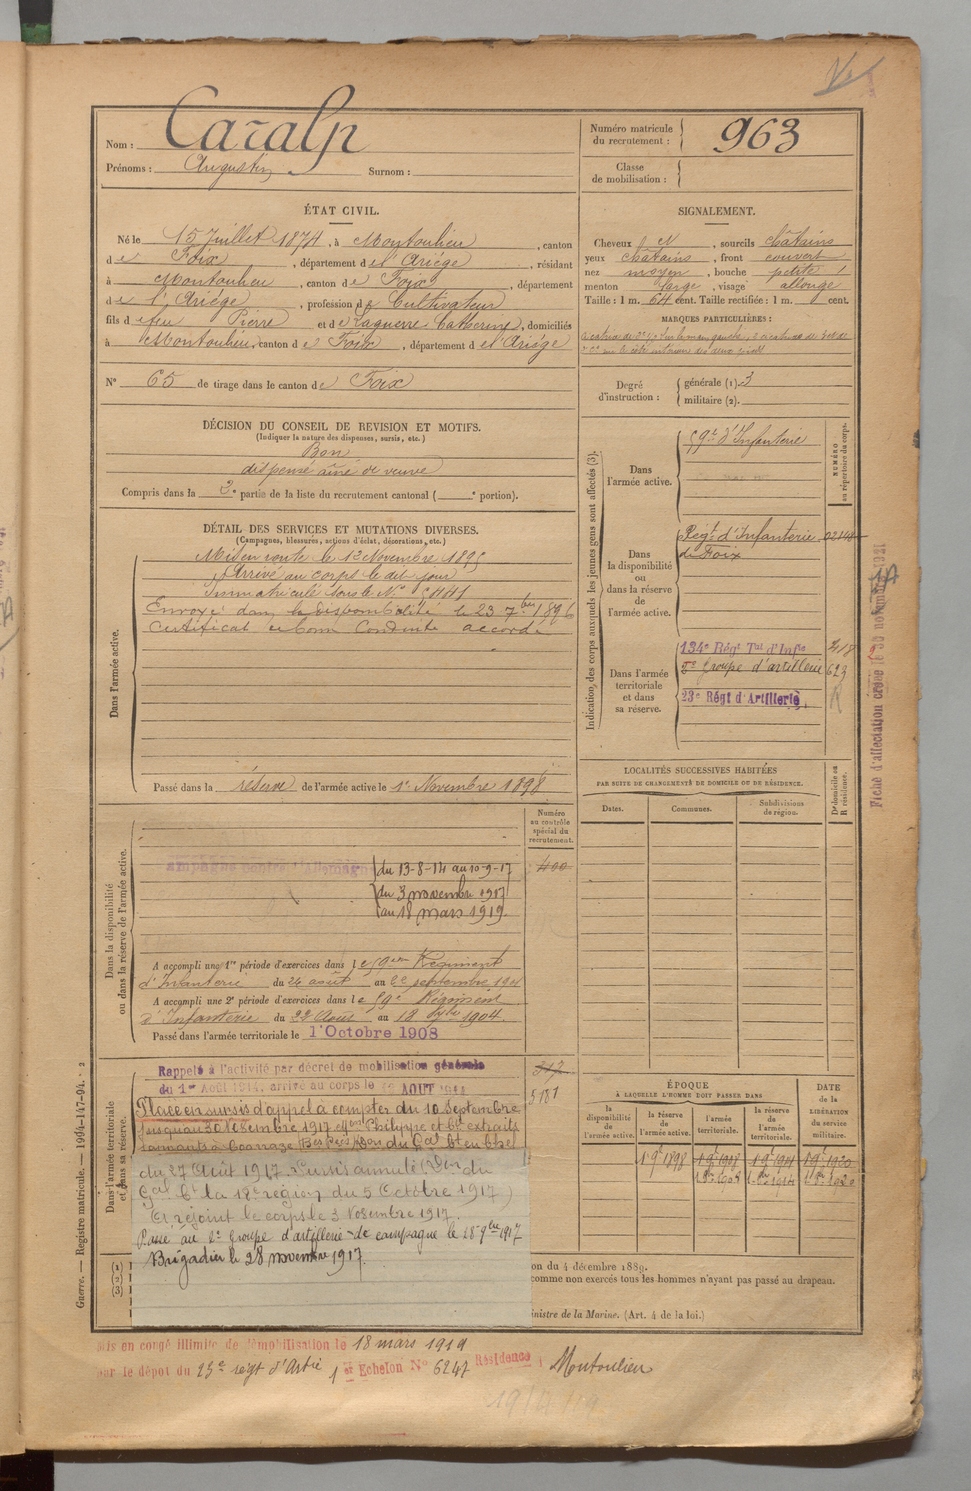 Nom : Caralp
Prénoms : Augustin Surnom :
Numéro matricule du recrutement : 963
Classe de mobilisation :
ÉTAT CIVIL.
Né le 15 Juillet 1874, à Montoulieu, canton
de Foix, département de l'Ariége, résidant
à Montoulieu, canton de Foix, département
de l'Ariége, profession de Cultivateur
fils de feu Pierre et de Laguerre Catherine, domiciliés
à Montoulieu, canton de Foix, département de l'Ariége
N° 65 de tirage dans le canton de Foix
SIGNALEMENT.
Cheveux N, sourcils châtains
yeux châtains, front couvert
nez moyen, bouche petite
menton large, visage allongé
Taille : 1 m. 64 cent. Taille rectifiée : 1 m. cent.
MARQUES PARTICULIÈRES :
Degré d'instruction : générale (1). 3
militaire (2).
DÉCISION DU CONSEIL DE REVISION ET MOTIFS.
(Indiquer la nature des dispenses, sursis, etc.)
Bon
dispensé aîné de veuve
Compris dans la 2e partie de la liste du recrutement cantonal ( e portion).
DÉTAIL DES SERVICES ET MUTATIONS DIVERSES.
(Campagnes, blessures, actions d'éclat, décorations, etc.)
Dans l'armée active.
Mis en route le 12 Novembre 1895
Arrivé au corps le dit jour
Immatriculé sous le N°
Envoyé dans la disponibilité le 23 7bre 1896
Certificat de bonne Conduite accordé
Passé dans la réserve de l'armée active le 1er Novembre 1898
Indication des corps auxquels les jeunes gens sont affectés (3).
NUMÉRO au répertoire du corps.
Dans l'armée active.
59e d'Infanterie
Dans la disponibilité ou dans la réserve de l'armée active.
Régt d'Infanterie
de Foix
Dans l'armée territoriale et dans sa réserve.
134e Régt Tal d'Infie
2e groupe d'artillerie 623
23e Régt d'Artillerie
Fiche d'affectation créée le 30 novembre 1921
LOCALITÉS SUCCESSIVES HABITÉES
PAR SUITE DE CHANGEMENTS DE DOMICILE OU DE RÉSIDENCE.
Dates.
Communes.
Subdivisions de région.
D domicile ou R résidence.
Dans la disponibilité ou dans la réserve de l'armée active.
Numéro au contrôle spécial du recrutement.
400
du 13-8-14 au 10-9-17
du 3 novembre 1917
au 18 mars 1919.
A accompli une 1re période d'exercices dans le 59eme Régiment
d'Infanterie du 26 août au 22 septembre 1901
A accompli une 2e période d'exercices dans le 59e Régiment
d'Infanterie du 22 Août au 18 Sbre 1904.
Passé dans l'armée territoriale le 1er Octobre 1908
Dans l'armée territoriale et dans sa réserve.
Rappelé à l'activité par décret de mobilisation générale
du 1er Août 1914, arrivé au corps le AOUT 1914
Placé en sursis d'appel à compter du 10 Septembre
jusqu'au 30 Novembre 1917
du 27 Août 1917. Sursis annulé (Don du
Gal Ct la 18e région du 5 Octobre 1917)
A rejoint le corps le 3 Novembre 1917.
Passé au 2e groupe d'artillerie de campagne le 18 9bre 1917
Brigadier le 28 novembre 1917.
312
5181
ÉPOQUE
À LAQUELLE L'HOMME DOIT PASSER DANS
la disponibilité de l'armée active.
la réserve de l'armée active.
l'armée territoriale.
la réserve de l'armée territoriale.
DATE de la LIBÉRATION du service militaire.
1 9e 1898
1 9e 1908
1 9e 1914
1 9e 1920
(1)
(2)
(3)
on du 4 décembre 1889.
comme non exercés tous les hommes n'ayant pas passé au drapeau.
inistre de la Marine. (Art. 4 de la loi.)
Guerre. — Registre matricule. — 1994-147-94. 2
Mis en congé illimité de démobilisation le 18 mars 1919
par le dépôt du 23e régt d'Artie 1er Echelon N° 6247 Résidence à Montoulieu